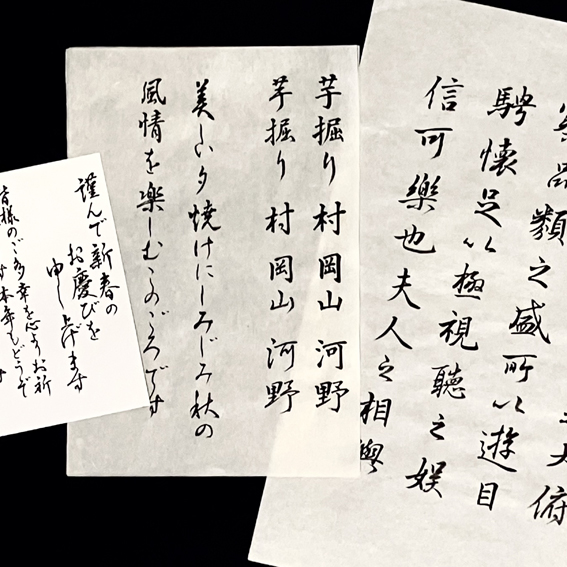 之大俯
察品類之盛所以遊目
騁懷足以極視聽之娛
信可樂也夫人之相與
芋掘り村岡山河野
芋掘り村岡山河野
美しい夕焼けにしみじみ秋の
風情を楽しむこのごろです
謹んで新春の
お慶びを
申し上げます
皆様のご多幸を心よりお祈
本年もどうぞ